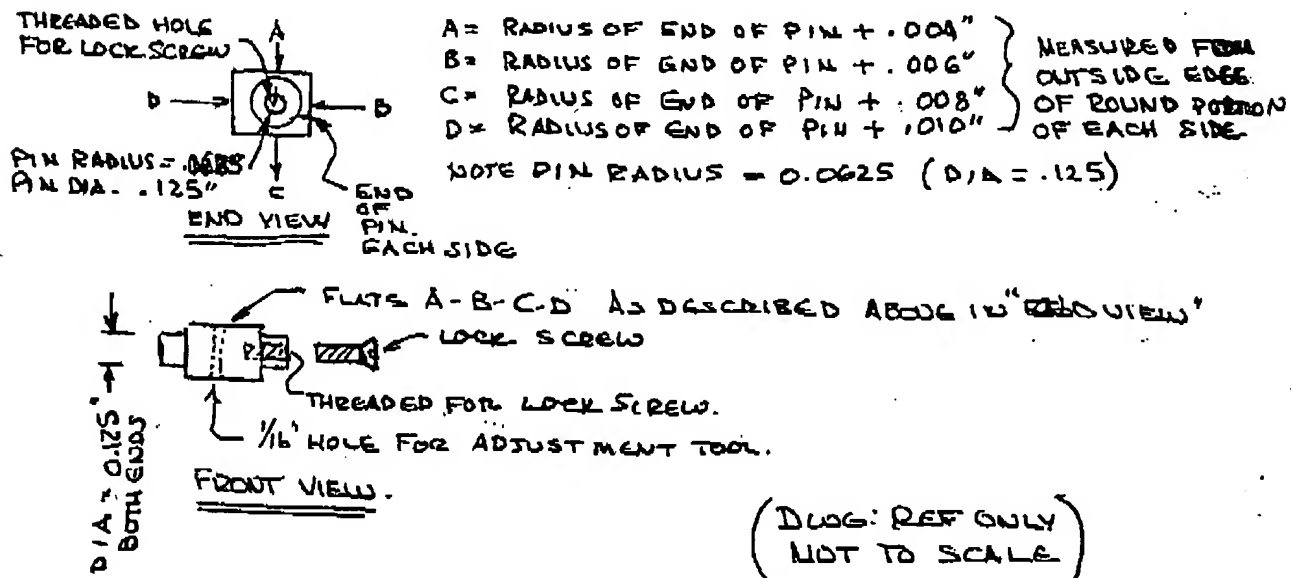 THREADED HOLE
FOR LOCK SCREW
A
D
B
C
PIN RADIUS = .0625
PIN DIA. .125"
END VIEW
END
OF
PIN.
EACH SIDE
A= RADIUS OF END OF PIN + .004"
B= RADIUS OF END OF PIN + .006"
C= RADIUS OF END OF PIN + .008"
D= RADIUS OF END OF PIN + .010"
MEASURED FROM
OUTSIDE EDGE
OF ROUND PORTION
OF EACH SIDE
NOTE PIN RADIUS = 0.0625 (DIA = .125)
FLATS A-B-C-D AS DESCRIBED ABOVE IN "END VIEW"
LOCK SCREW
THREADED FOR LOCK SCREW.
1/16" HOLE FOR ADJUSTMENT TOOL.
DIA = 0.125"
BOTH ENDS
FRONT VIEW.
(DWG: REF ONLY
NOT TO SCALE)